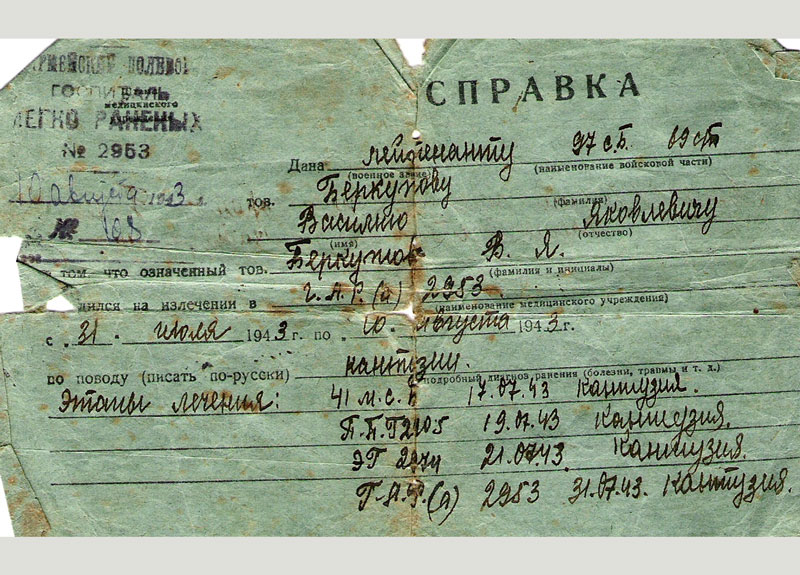 АРМЕЙСКИЙ ПОЛЕВОЙ
ГОСПИТАЛЬ
медицинского
учреждения
ЛЕГКО РАНЕНЫХ
№ 2953
10 августа 1943 г.
№ 108
СПРАВКА
Дана лейтенанту 97 с.Б.
(военное звание) (наименование войсковой части)
тов. Беркутову
(фамилия)
Василию Яковлевичу
(имя) (отчество)
в том, что означенный тов. Беркутов В. Я.
(фамилия и инициалы)
дился на излечении в Г.Л.Р.(а) 2953
(наименование медицинского учреждения)
с 31 июля 1943 г. по 10 августа 1943 г.
по поводу (писать по-русски) контузии.
подробный диагноз ранения (болезни, травмы и т. д.)
Этапы лечения: 41 м.с.б 17.07.43 Контузия.
П.П.Г 2205 19.07.43 Контузия.
ЭГ 21.07.43. Контузия.
Г.Л.Р.(а) 2953 31.07.43. Контузия.